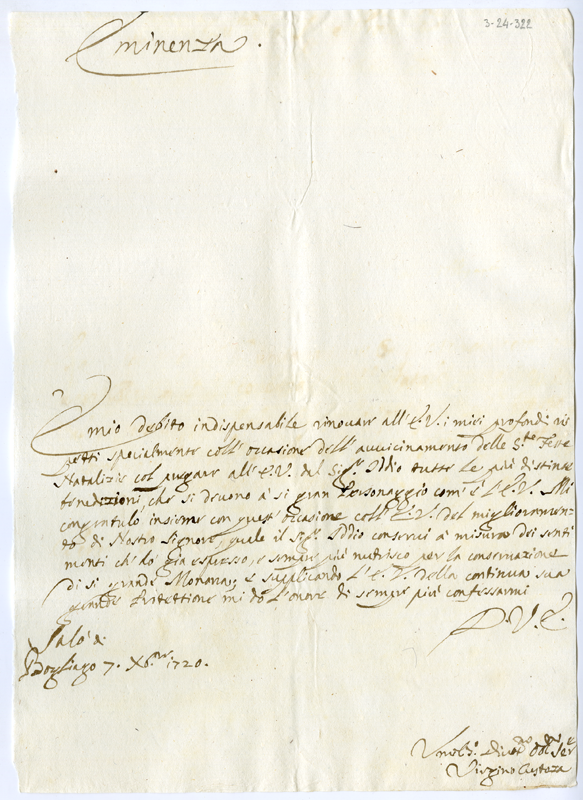 3-24-322
Eminenza.
E mio debito indispensabile rinovare all'E.V. i miei profondi ris
petti specialmente coll'occasione dell'avvicinamento delle S.te Feste
Natalizie col pregare all'E.V. dal Sig.r Iddio tutte le più distinte
benedizioni, che si devono à si gran Personaggio com'è l'E.V. Mi
congratulo insieme con quest'occasione coll'E.V. del miglioramen
to di Nostro Signore, quale il Sig.r Iddio conservi à misura dei senti
menti ch'hò già espresso, e sempre più nutrisco per la conservazione
di si grande Monarca; e supplicando l'E.V. della continua sua
grande Protettione mi dò l'onore di sempre più confessarmi
D.V.E.
Salò à
7. Xbre 1720.
Umil.o Divot.o Obl.o Ser.e